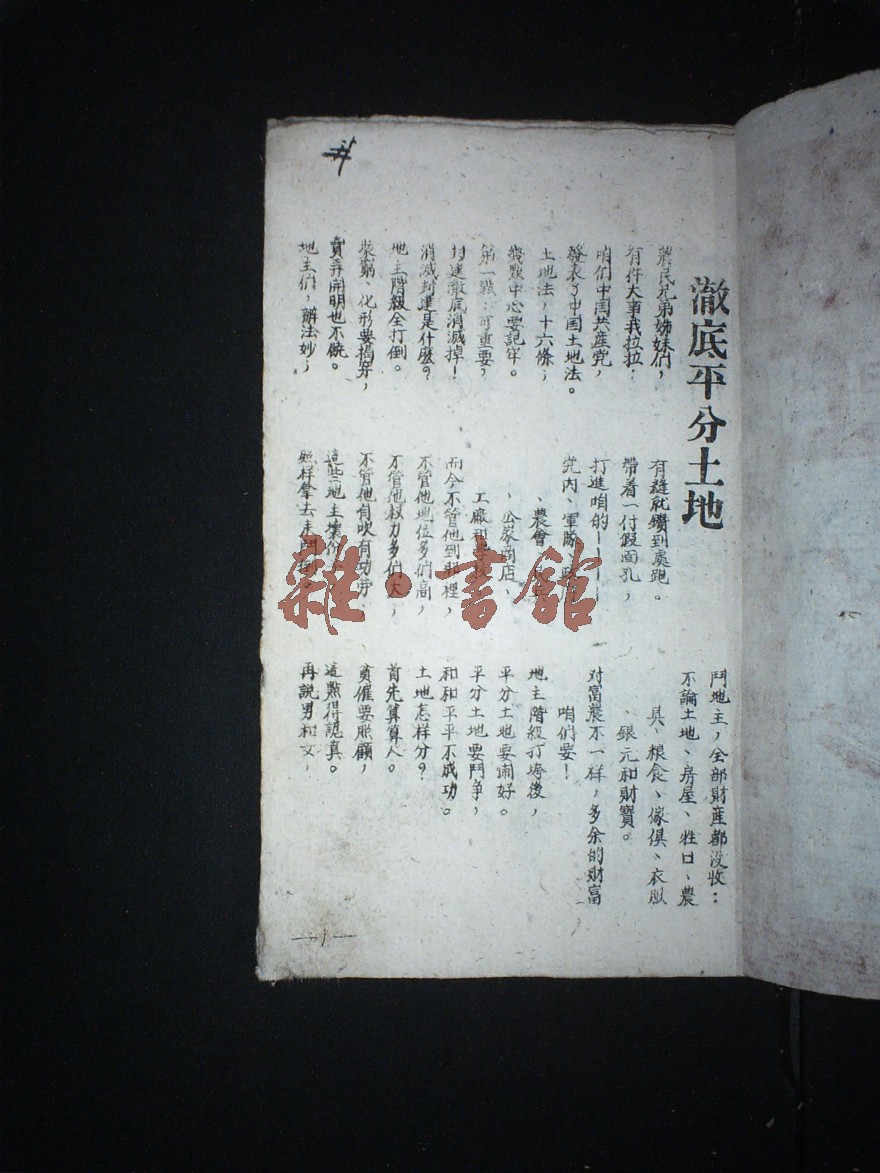 澈底平分土地
農民兄弟姊妹們，
有件大事我拉拉：
咱们中国共產党，
發表了中国土地法。
土地法，十六條；
幾點中心要記牢。
第一點：可重要，
封建澈底消滅掉！
消滅封建是什麼？
地主階級全打倒。
裝窮、化形要揭穿，
賣弄開明也不饒。
地主们，辦法妙；
有縫就鑽到處跑。
帶着一付假面孔，
打進咱的————
党内、軍隊、
、農會、
、公家商店、
工廠和學校
而今不管他到那裡，
不管他地位多们高，
不管他权力多们大；
不管他自吹有功劳，
這些地主壞份
照样拿去来鬥倒。
鬥地主，全部財產都没收：
不論土地、房屋、牲口、農
具、粮食、傢俱、衣服
、銀元和財寶。
对富農不一样，多余的財富
咱们要！
地主階級打垮後，
平分土地要闹好。
平分土地要鬥争，
和和平平不成功。
土地怎样分？
首先算算人。
貧僱要照顧，
這點得認真。
再說男和女，
—1—
雜·書舘